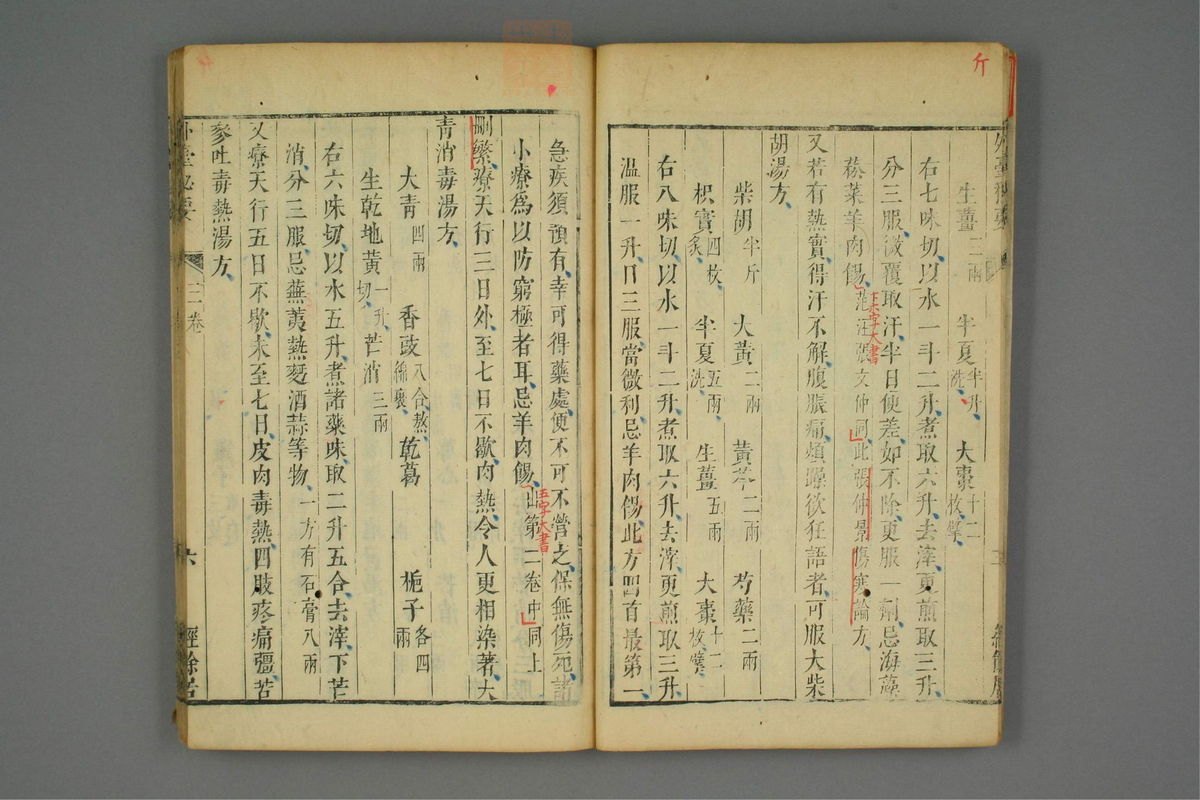 斤
外臺秘要
生薑三兩 半夏半升洗 大棗十二枚擘
右七味切以水一斗二升煮取六升去滓更煎取三升
分三服微覆取汗半日便差如不除更服一劑忌海藻
菘菜羊肉餳范汪張文仲同此張仲景傷寒論方
五字大書
又若有熱實得汗不解腹脹痛煩躁欲狂語者可服大柴
胡湯方
柴胡半斤 大黃二兩 黃芩二兩 芍藥二兩
枳實四枚炙 半夏五兩洗 生薑五兩 大棗十二枚擘
右八味切以水一斗二升煮取六升去滓更煎取三升
溫服一升日三服當微利忌羊肉餳此方四首最第一
急疾須預有幸可得藥處便不可不營之保無傷死諸
小療為以防窮極者耳忌羊肉餳出第二卷中同上
五字大書
刪繁療天行三日外至七日不歇肉熱令人更相染著大
青消毒湯方
大青四兩 香豉八合熬綿裹 乾葛 梔子各四兩
生乾地黃一升切 芒消三兩
右六味切以水五升煮諸藥味取二升五合去滓下芒
消分三服忌蕪荑熱麵酒蒜等物一方有石膏八兩
又療天行五日不歇未至七日皮肉毒熱四肢疼痛彊苦
參吐毒熱湯方
外臺秘要 三卷 六 經餘居